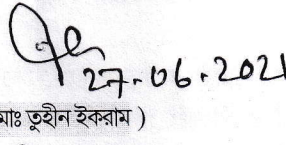 27.06.2021
মোঃ তুহীন ইকরাম )